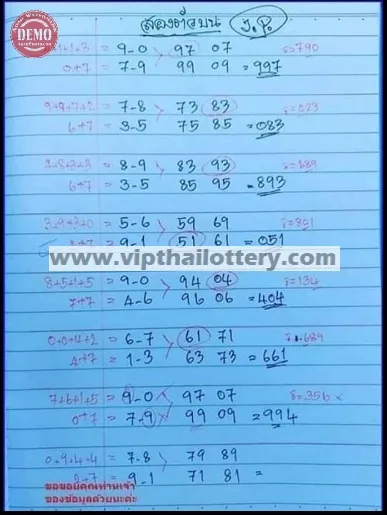 DEMO
สองตัวบน J.P.
+1+3 = 9-0 97 07 8=790
0+7 = 7-9 99 09 = 997
9+9+7+2 = 7-8 73 83 8=023
6+7 = 3-5 75 85 = 083
+8+3+3 = 8-9 83 93
6+7 = 3-5 85 95 = 893
3+9+3+0 = 5-6 59 69 8=801
+7 = 9-1 51 61 = 051
www.vipthailottery.com
8+5+1+5 = 9-0 94 04 8=134
7+7 = 4-6 96 06 = 404
0+0+4+2 = 6-7 61 71 689
4+7 = 1-3 63 73 = 661
7+6+1+5 = 9-0 97 07 8=356 x
0+7 = 7-9 99 09 = 994
0+9+4+4 = 7-8 79 89
+7 = 9-1 71 81 =
ขอขอบคุณท่านเจ้า
ของข้อมูลด้วยนะค่ะ